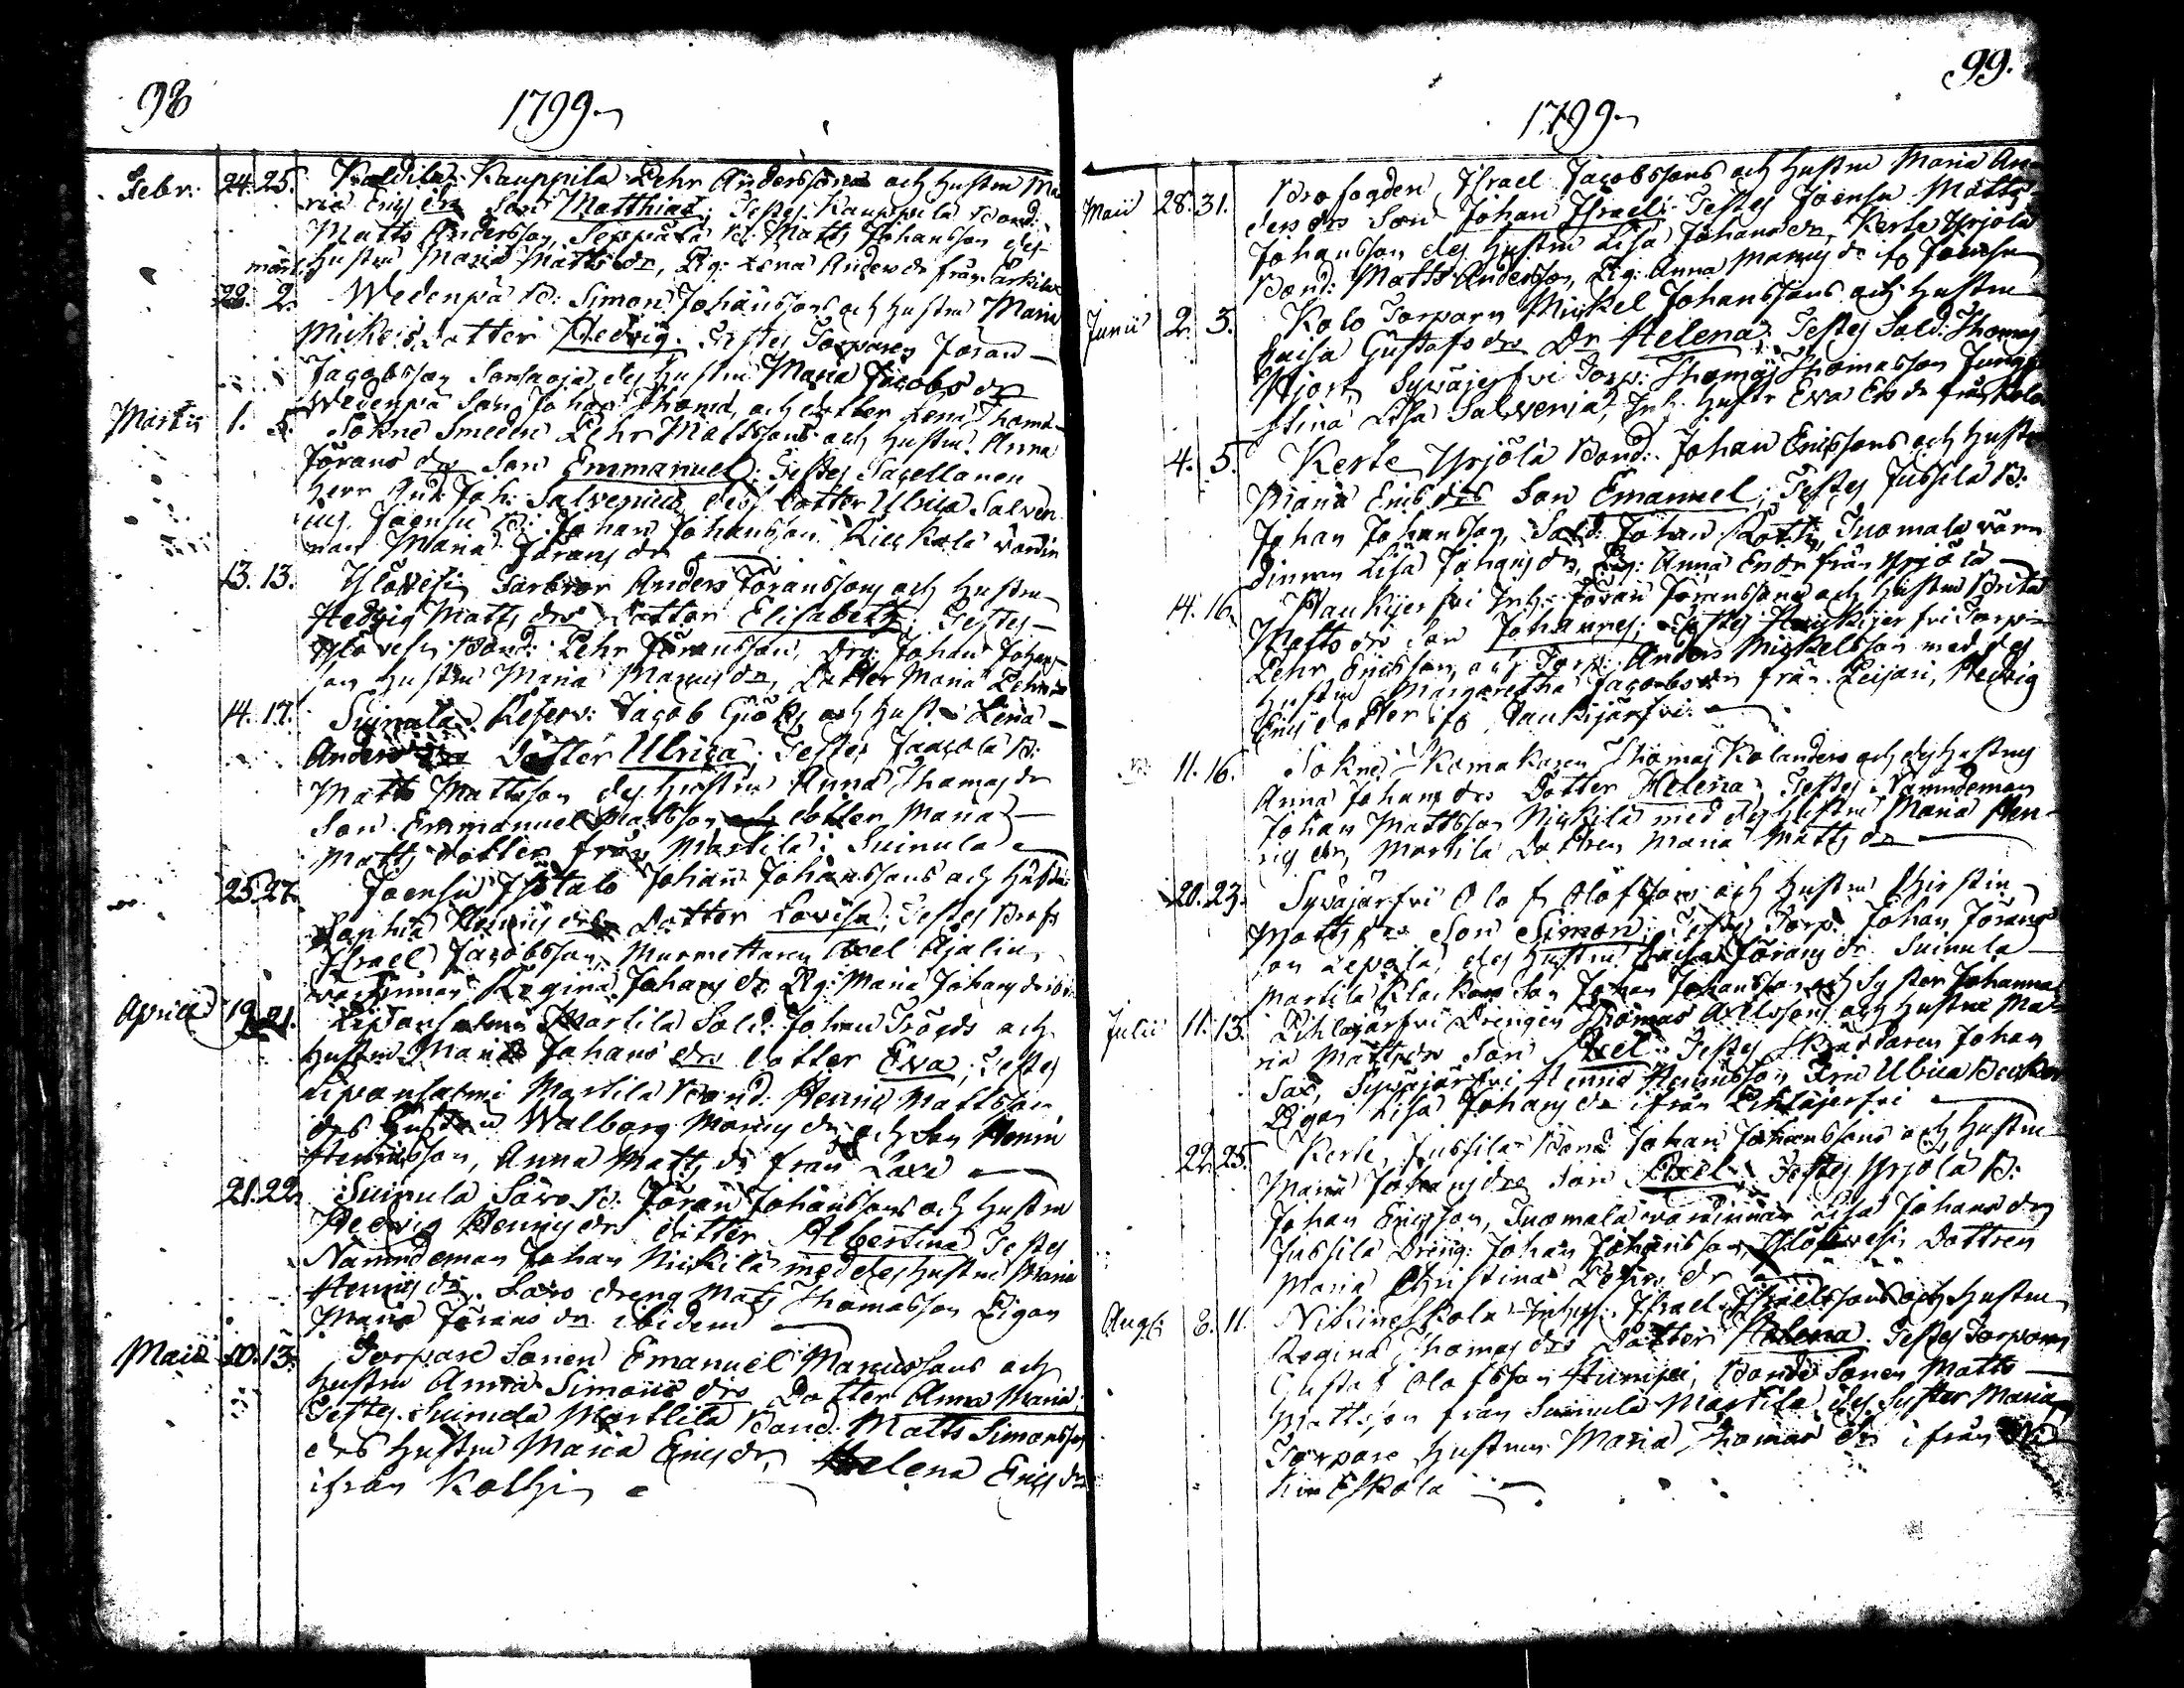 98
1799
Febr: 24. 25. Kaldila Kauppila Pehr Anderssons och hustru Ma
ria Erics drs Son Matthias; Testes Kauppila Bond:
Matts Andersson, Seppälä B: Matts Johansson dess
hustru Maria Matts dr, Pig: Lena Anders dr från
mart: 28. 2. Wedenpä B: Simon Johanssons och hustru Maria
Mickels dotter Hedvig. Testes Torparen Jöran
Jacobsson dess hustru Maria Jacobs dr
Wedenpä Son Johan Thomas, och dotter Lena Thoma
Martii 1. 5. Sokne Smeden Pehr Mattssons och hustru Anna
Jörans drs Son Emmanuel; Testes Sacellanen
Herr And: Joh: Salvenius, dess dotter Ulrica Salven
ius, Joensu B: Johan Johansson värdin
nan Maria Jörans dr
13. 13. Ylövesi Anders Jöranssons och hustru
Hedvig Matts drs Dotter Elisabeth; Testes
Ylövesi Bond: Pehr Jöransson, Drg: Johan Johans
son hustru Maria Marcus dr, Dotter Maria Pehrs dr
14. 17. Suinula Reserv: Jacob Giöks och hustr Lena
Anders drs Dotter Ulrica; Testes Jaacola B:
Matts Mattsson dess hustru Anna Thomas dr
Son Emmanuel Mattsson och dotter Maria
Matts dotter från Martila i Suinula
25. 27. Joensu Johan Johanssons och hustru
Sophia Henrics drs Dotter Lovisa; Testes Brof:
Israel Jacobsson, Murmästaren Axel Hjelin
värdinnan Regina Johans dr Pig: Maria Johans dr ibid:
Aprill 19. 21. Liponsalmi Martila Sold: Johan Trögds och
hustru Maria Johans drs dotter Eva; Testes
Liponsalmi Martila Bond: Henric Mattsson
dess Hustru Walborg Marcus dr och Son Henric
Henricsson, Anna Matts dr från Laxi
21. 22. Suinula Säro B: Jöran Johanssons och hustru
Hedvig Henrics drs dotter Albertina Testes
Nämndeman Johan Nickilä med dess hustru Maria
Henrics dr, Säro dreng Matts Thomasson Pigan
Maria Jörans dr ibidem
Maii 10. 13. Torpare Sonen Emanuel Marcussons och
hustru Anna Simons drs Dotter Anna Maria;
Testes Suinula Marttila Bond: Matts Simonsson
dess hustru Maria Erics dr, Helena Erics dr
ifrån Kolhi
99.
1799
Maii 28. 31. Brofogden Israel Jacobssons och hustru Maria An
ders drs Son Johan Israel: Testes Joensu Matts
Johansson dess hustru Lisa Johans dr, Kerte Yrjölä
Bond: Matts Andersson, Pig: Anna Marcus dr ifr Joensu
Junii 2. 3. Kolo Torparn Mickel Johanssons och hustru
Caisa Gustafs drs Dr Helena; Testes Sold: Thomas
Hjort, Syväjerfvi Torp: Thomas Thomasson Jungf:
Stina Lisa Salvenia, Inh: hustr Eva Ers dr från Kolo
4. 5. Kerte Yrjölä Bond: Johan Ericssons och hustr
Maria Erics drs Son Emanuel; Testes Jussila B:
Johan Johansson, Sold: Johan Roth, Tuomala värn
dinnan Lisa Johans dr, Pig: Anna Ers dr från Yrjölä
14. 16. Haukijerfvi Inh: Jöran Jöranssons och hustru Brita
Matts drs Son Johannes; Testes Haukijerfvi Torp
Pehr Ericsson, och Torp: Anders Mickelsson med dess
hustru Margaretha Jacobs dr från Leijari, Hedvig
Erics dotter ifr Haukijärfvi
11. 16. Sokne Skomakaren Thomas Kolanders och dess hustrus
Anna Johans drs Dotter Helena; Testes Nämndeman
Johan Mattsson Nickilä med dess hustru Maria Hen
rics dr, Martila Dottren Maria Matts dr
20. 23. Syväjärfvi Olof Olofssons och hustru Christin
Matts drs Son Simon; Testes Torp: Johan Jörans
son Lepola, dess hustru Caisa Jörans dr Suinula
Martila Klockare Son Johan Johansson och Syster Johanna
Julii 11. 13. Pihlajärfvi Drengen Thomas Axelssons och hustru Ma
ria Matts drs Son Axel; Testes Skräddaren Johan
Sax, Syväjärfvi Henric Henricsson Fru Ulrica
Pigan Lisa Johans dr ifrån Pihlajerfvi
22. 25. Kerte Jussila Bond: Johan Johanssons och hustru
Maria Johans drs Son Axel; Testes Yrjölä B:
Johan Ericsson, Tuomala värdinnan Lisa Johans dr
Jussila Dreng: Johan Johansson, Ylövesi Dottren
Maria Christina Pehrs dr
Augti 8. 11. Niskineskola Inhys: Israel Israelssons och hustru
Regina Thomas drs Dotter Helena. Testes Torparn
Gustaf Olofsson Humpi, Bonde Sonen Matts
Mattsson från Suinula Martila dess Syster Maria
Torpare hustrun Maria Thomas dr ifrån Ni
kin Eskola